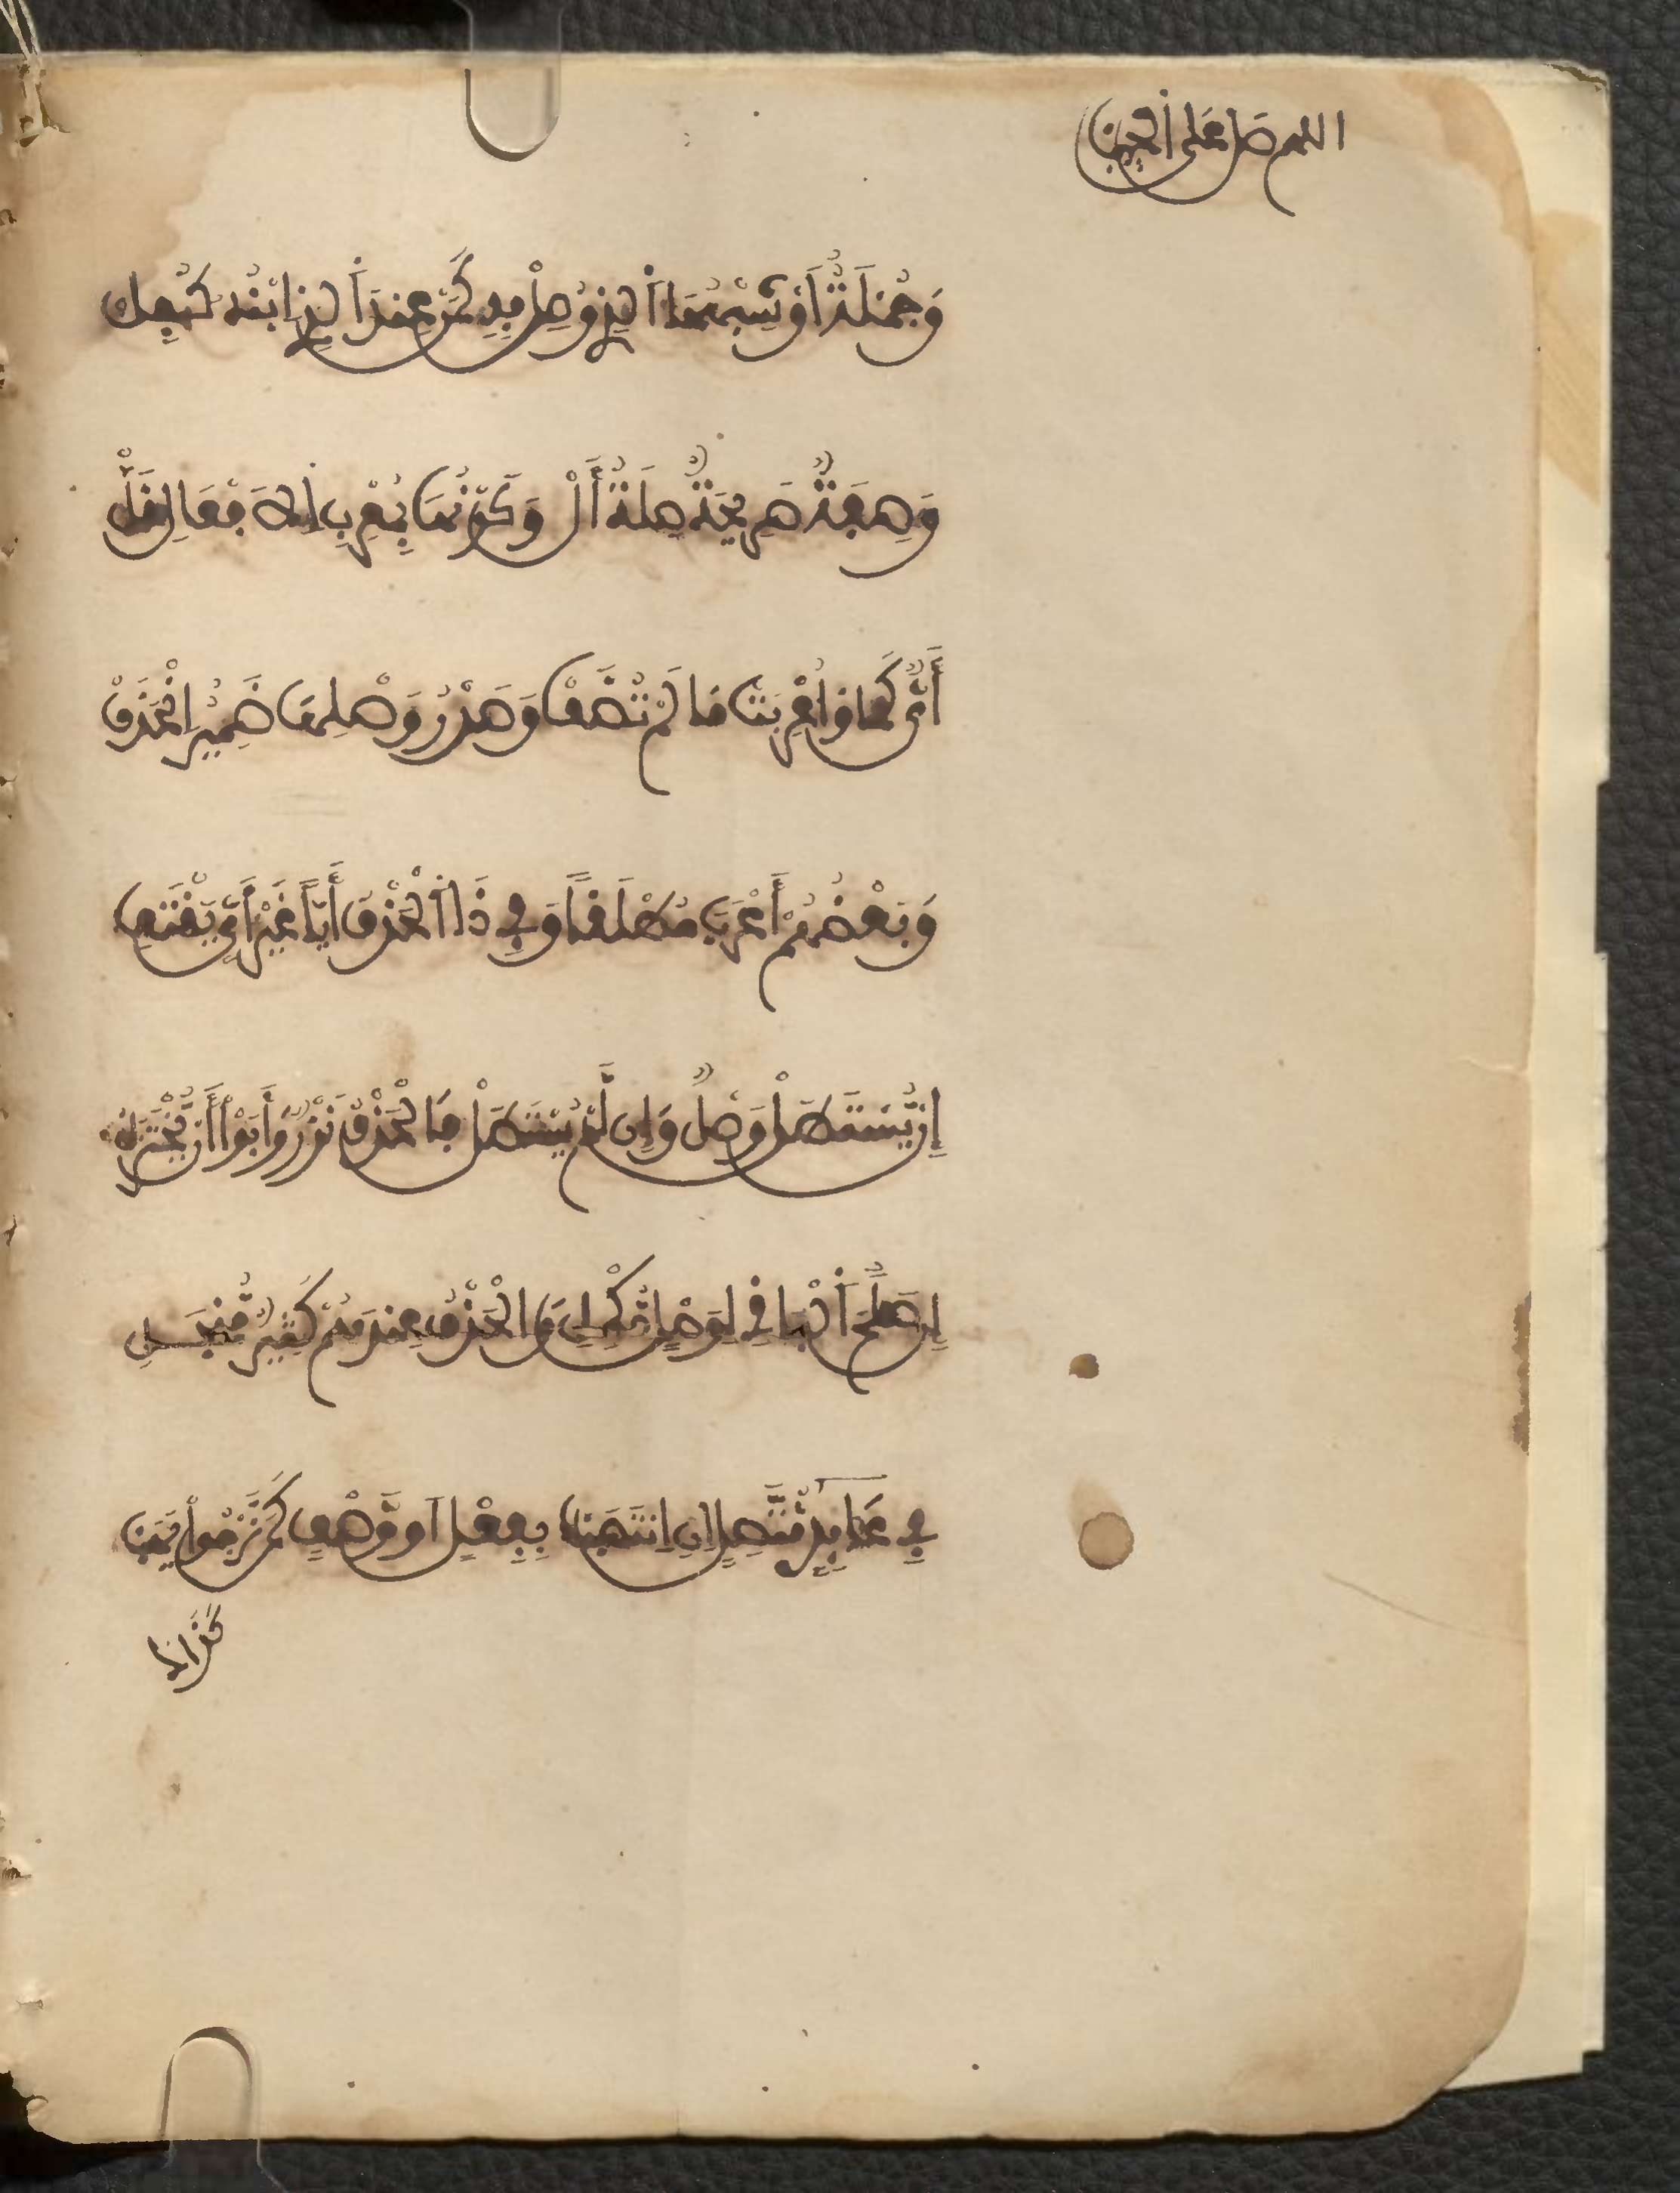 اللهم صل على الحبيب
وَجُمْلَةٌ اَوْ شِبْهُهَا الَّذِي وُصِلْ بِهِ كَمَنْ عِنْدِي الَّذِي ابْنُهُ كُفِلْ
وَصِفَةٌ صَرِيحَةٌ صِلَةُ أَلْ وَكَوْنُهَا بِمُعْرَبِ الَافْعَالِ قَلّْ
أَيٌّ كَمَا وَأُعْرِبَتْ مَا لَمْ تُضَفْ وَصَدْرُ وَصْلِهَا ضَمِيرٌ انْحَذَفْ
وَبَعْضُهُمْ أَعْرَبَ مُطْلَقاً وَفِي ذَا الْحَذْفِ أَيّاً غَيْرُ أَيٍّ يَقْتَفِي
إِنْ يُّسْتَطَلْ وَصْلٌ وَإِن لَّمْ يُسْتَطَلْ فَالْحَذْفُ نَزْرٌ وَأَبَوْا أَنْ يُّخْتَزَلْ
إِن صَلُحَ الْبَاقِي لِوَصْلٍ مُّكْمِلِ وَالْحَذْفُ عِندَهُمْ كَثِيرٌ مُّنْجَلِ
فِي عَآئِدٍ مُّتَّصِلٍ إِنِ اِنتَصَبْ بِفِعْلٍ اَوْ وَّصْفٍ كَمَن نَّرْجُوا يَهَبْ
كَذَا